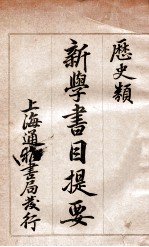 歷史類
新學書目提要
上海通雅書局發行